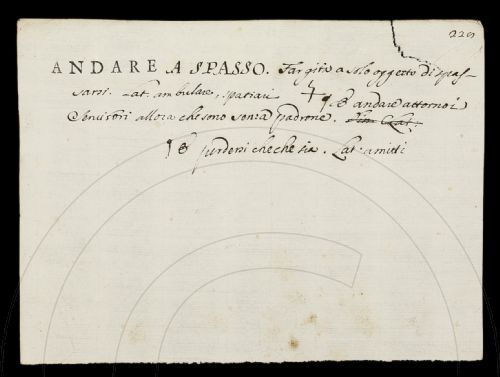 229
ANDARE A SPASSO. Far gite a solo oggetto di spas-
sarsi. Lat. ambulare, spatiari ¶ È andare attorno i
servitori allora che sono senza padrone.
¶ È perdersi che che sia. Lat. amitti